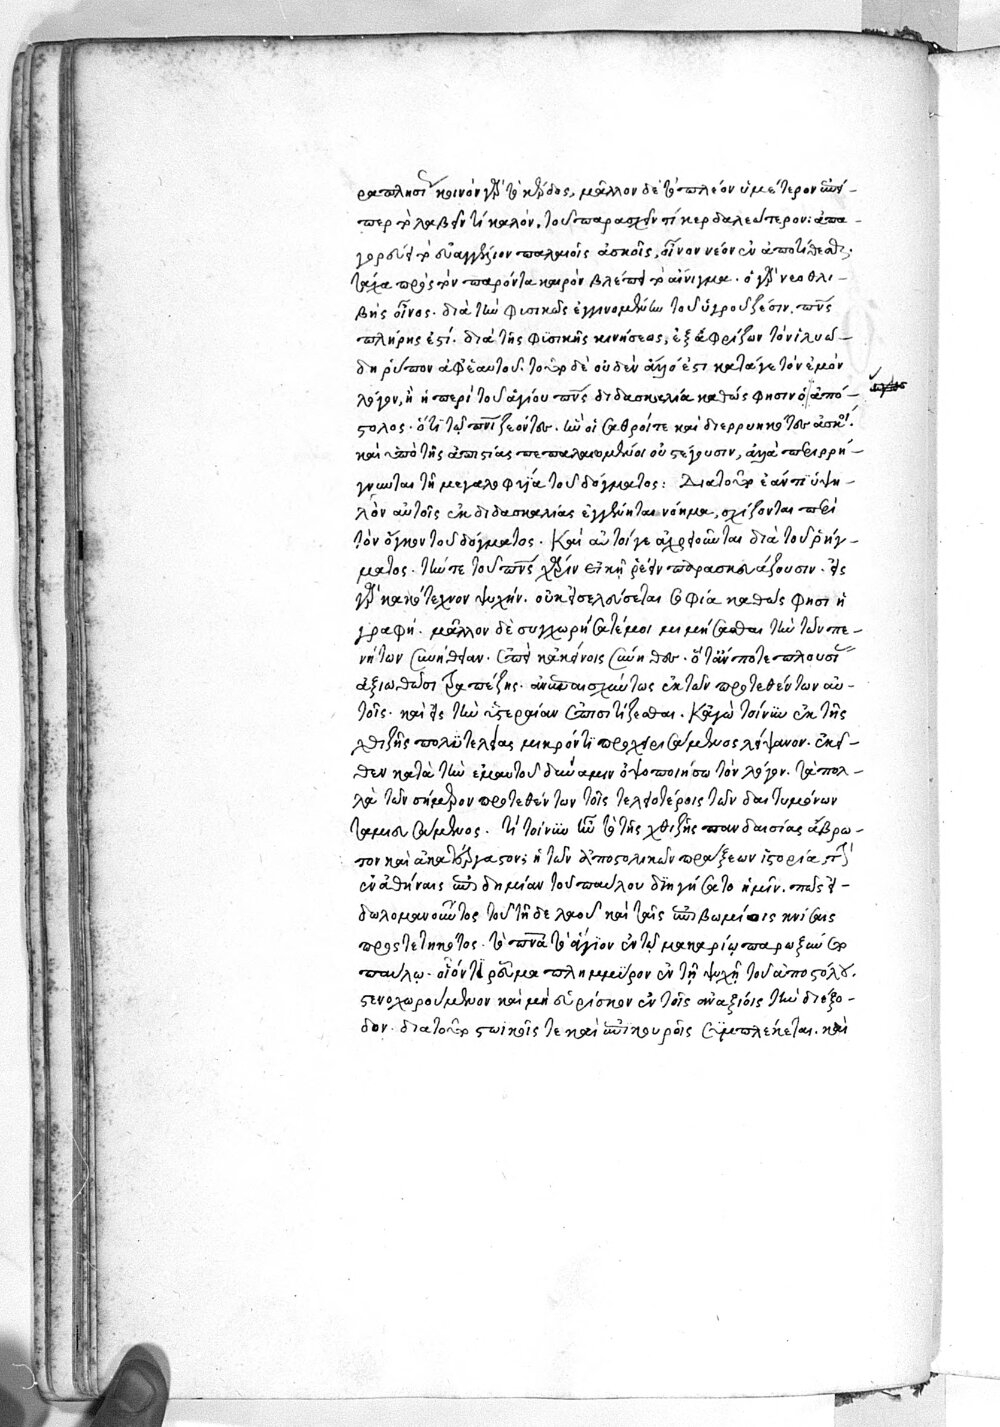 ραπλησίον κοινὸν γὰρ τὸ κέρδος, μᾶλλον δὲ τὸ πλέον ὑμέτερον
περ τὸ λαβεῖν τι καλὸν, τοῦ παρασχεῖν τι κερδαλεώτερον: ἀπα-
γορεύει τὸ εὐαγγέλιον παλαιοῖς ἀσκοῖς, οἶνον νέον ἐναποτίθεσθαι.
τάχα πρὸς τὸν παρόντα καιρὸν βλέπει τὸ αἴνιγμα. ὁ γὰρ νεοθλι-
βὴς οἶνος. διὰ τὴν φυσικῶς ἐγγινομένην τοῦ ὑγροῦ ζέσιν. πνεύματος
πλήρης ἐστί. διὰ τῆς φυσικῆς κινήσεως, ἐξαφρίζων τὸν ἰλυώ-
δη ῥύπον ἀφ' ἑαυτοῦ. τοῦτο δὲ οὐδὲν ἄλλο ἐστι κατά γε τὸν ἐμὸν
λόγον, ἢ ἡ περὶ τοῦ ἁγίου πνεύματος διδασκαλία καθώς φησιν ὁ ἀπό-
στολος. ὅτι τῷ πνεύματι ζεόντων. ἣν οἱ σαθροί τε καὶ διερρυηκότες ἀσκοὶ.
καὶ ὑπὸ τῆς ἀπιστίας πεπαλαιωμένοι οὐ στέγουσιν, ἀλλὰ περιρρή-
γνυνται τῇ μεγαλοφυΐα τοῦ δόγματος: Διὰ τοῦτο ἐάν τι ὑψη-
λὸν αὐτοῖς ἐκ διδασκαλίας ἐγγένηται νόημα, σχίζονται περὶ
τὸν ὄγκον τοῦ δόγματος. Καὶ αὐτοί γε ἀχρειοῦνται διὰ τοῦ ῥήγ-
ματος. τήν τε τοῦ πνεύματος χάριν εἰκῆ ῥεῖν παρασκευάζουσιν. εἰς
γὰρ κακότεχνον ψυχήν. οὐκ εἰσελεύσεται σοφία καθώς φησι ἡ
γραφή. μᾶλλον δὲ συγχωρήσατέ μοι μιμήσασθαι τὴν τῶν πε-
νήτων συνήθειαν. ἐπεὶ κἀκείνοις σύνηθες. ὅτ' ἄν ποτε πλουσίας
ἀξιωθῶσι τραπέζης. ἀνεπαισχύντως ἐκ τῶν προτεθέντων αὐ-
τοῖς. καὶ εἰς τὴν ὑστεραίαν ἐπισιτίζεσθαι. Κἀγὼ τοίνυν ἐκ τῆς
χθιζῆς πολυτελείας μικρόν τι προχειρισάμενος λείψανον. ἐκεῖ-
θεν κατὰ τὴν ἐμαυτοῦ δύναμιν ὀψοποιήσω τὸν λόγον. τὰ πολ-
λὰ τῶν σήμερον προτεθέντων τοῖς τελειοτέροις τῶν δαιτυμόνων
ταμιευσάμενος. τί τοίνυν ἦν τὸ τῆς χθιζῆς πανδαισίας ἄβρω-
τον καὶ ἀκατέργαστον; ἡ τῶν ἀποστολικῶν πράξεων ἱστορία,
ἐν ἀθήναις ἐπιδημίαν τοῦ παύλου διηγήσατο ἡμῖν. πῶς εἰ-
δωλομανοῦντος τοῦ τῇδε λαοῦ καὶ ταῖς ἐπιβωμίοις κνίσαις
προστετηκότος. τὸ πνεῦμα τὸ ἅγιον ἐν τῷ μακαρίῳ παρωξύνετο
παύλῳ. οἷόν τι ῥεῦμα πλημμύρον ἐν τῇ ψυχῇ τοῦ ἀποστόλου.
στενοχωρούμενον καὶ μὴ εὑρίσκον ἐν τοῖς ἀναξίοις τὴν διέξο-
δον. διὰ τοῦτο στωϊκοῖς τε καὶ ἐπικουρείοις συμπλέκεται. καὶ